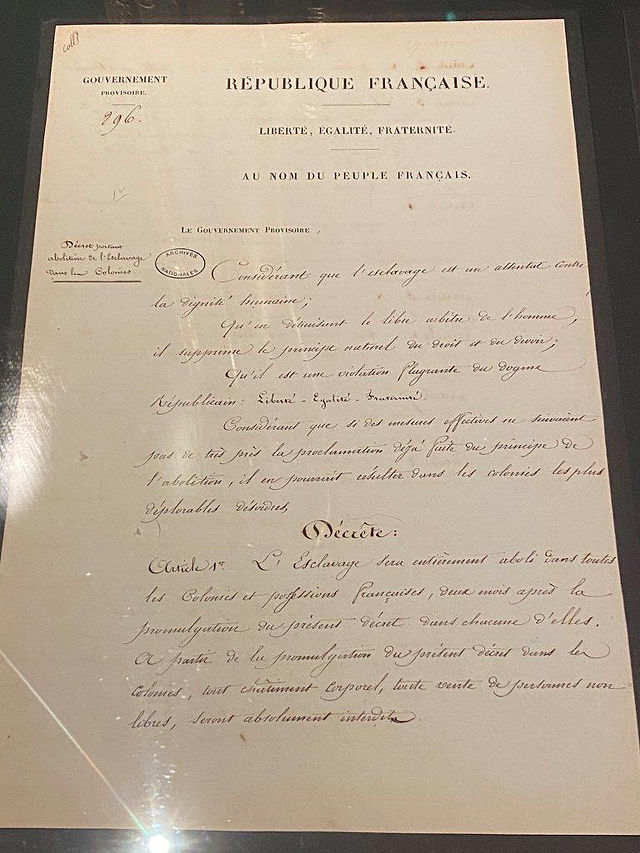 coll?
GOUVERNEMENT
PROVISOIRE.
296.
RÉPUBLIQUE FRANÇAISE.
LIBERTÉ, ÉGALITÉ, FRATERNITÉ.
AU NOM DU PEUPLE FRANÇAIS.
LE GOUVERNEMENT PROVISOIRE,
Décret portant
abolition de l'Esclavage
dans les Colonies
ARCHIVES
NATIONALES
Considérant que l'esclavage est un attentat contre
la dignité humaine;
Qu'en détruisant le libre arbitre de l'homme,
il supprime le principe naturel du droit et du devoir;
Qu'il est une violation flagrante du dogme
Républicain: Liberté - Egalité - Fraternité.
Considérant que si des mesures effectives ne suivaient
pas de très près la proclamation déjà faite du principe de
l'abolition, il en pourrait résulter dans les colonies les plus
déplorables désordres,
Décrète:
Article 1er L'Esclavage sera entièrement aboli dans toutes
les Colonies et possessions françaises, deux mois après la
promulgation du présent décret dans chacune d'elles.
A partir de la promulgation du présent décret dans les
colonies, tout châtiment corporel, toute vente de personnes non
libres, seront absolument interdits.